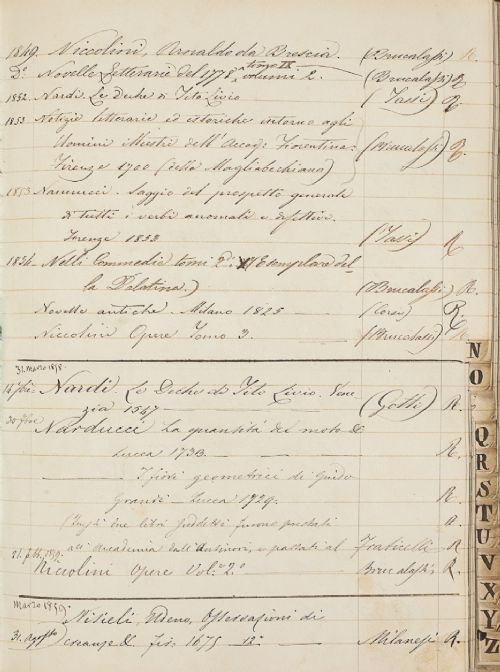 1849. Niccolini, Arnaldo da Brescia. (Brucalassi) R.
D.° Novelle Letterarie del 1778, tomo IX volumi 2. (Brucalassi) R.
1852. Nardi. Le Deche di Tito Livio (Tassi) R.
1853 Notizie letterarie ed istoriche intorno agli
Uomini illustri dell'Accad. Fiorentina.
Firenze 1700 (della Magliabechiana) (Brucalassi) R.
1853 Nannucci. Saggio del prospetto generale
di tutti i verbi anomali e difettivi
Firenze 1853 (Tassi) R
1854. Nelli Commedie tomi 2. (Esemplare del-
la Palatina.) (Brucalassi) R.
Novelle antiche. Milano 1825 R.
Niccolini Opere Tomo 3. (Brucalassi) R
31. Marzo 1858.
Nardi Le Deche di Tito Livio. Vene
zia 1547 (Gotti) R.
Narducci La quantità del moto &
Lucca 173 R.
I fiori geometrici di Guido
Grandi - Lucca 1729. R.
(Questi due libri suddetti furono prestati R.
all'Accademia dall' e passati al Fraticelli R
Niccolini Opere Vol.° 2.° Brucalassi R.
Marzo 1859.
Nisieli, Udeno, Osservazioni di
31. Agosto creanze & Fir. 1675 12° Milanesi R.
N
O
Q
R
S
T
U
V
X
Y
Z